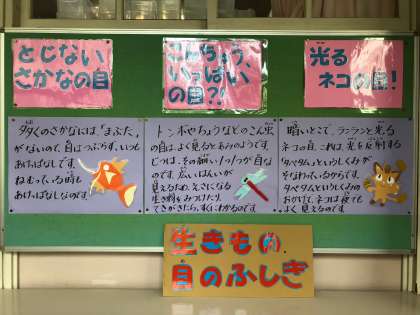 とじない
さかなの目
こんちゅう、
いっぱい
の目?!
光る
ネコの目!
多くのさかなには、「まぶた」
がないので、目はつぶらず、いつも
あけっぱなしです。
ねむっている時も
あけっぱなしなのです。
トンボやちょうなどのこん虫
の目は、よく見るとあみのようです。
じつは、その細い1つ1つが目な
のです。広いはんいが
見えるため、えさになる
生き物をみつけたり、
てきがきたら、すぐにわかるのです。
暗いとこで、ランランと光る
ネコの目。これは、光を反射する
タペタムというしくみが
そなわっているからです。
タペタムというしくみの
おかげで、ネコは夜でも
よく見えるのです。
生きもの、
目のふしぎ